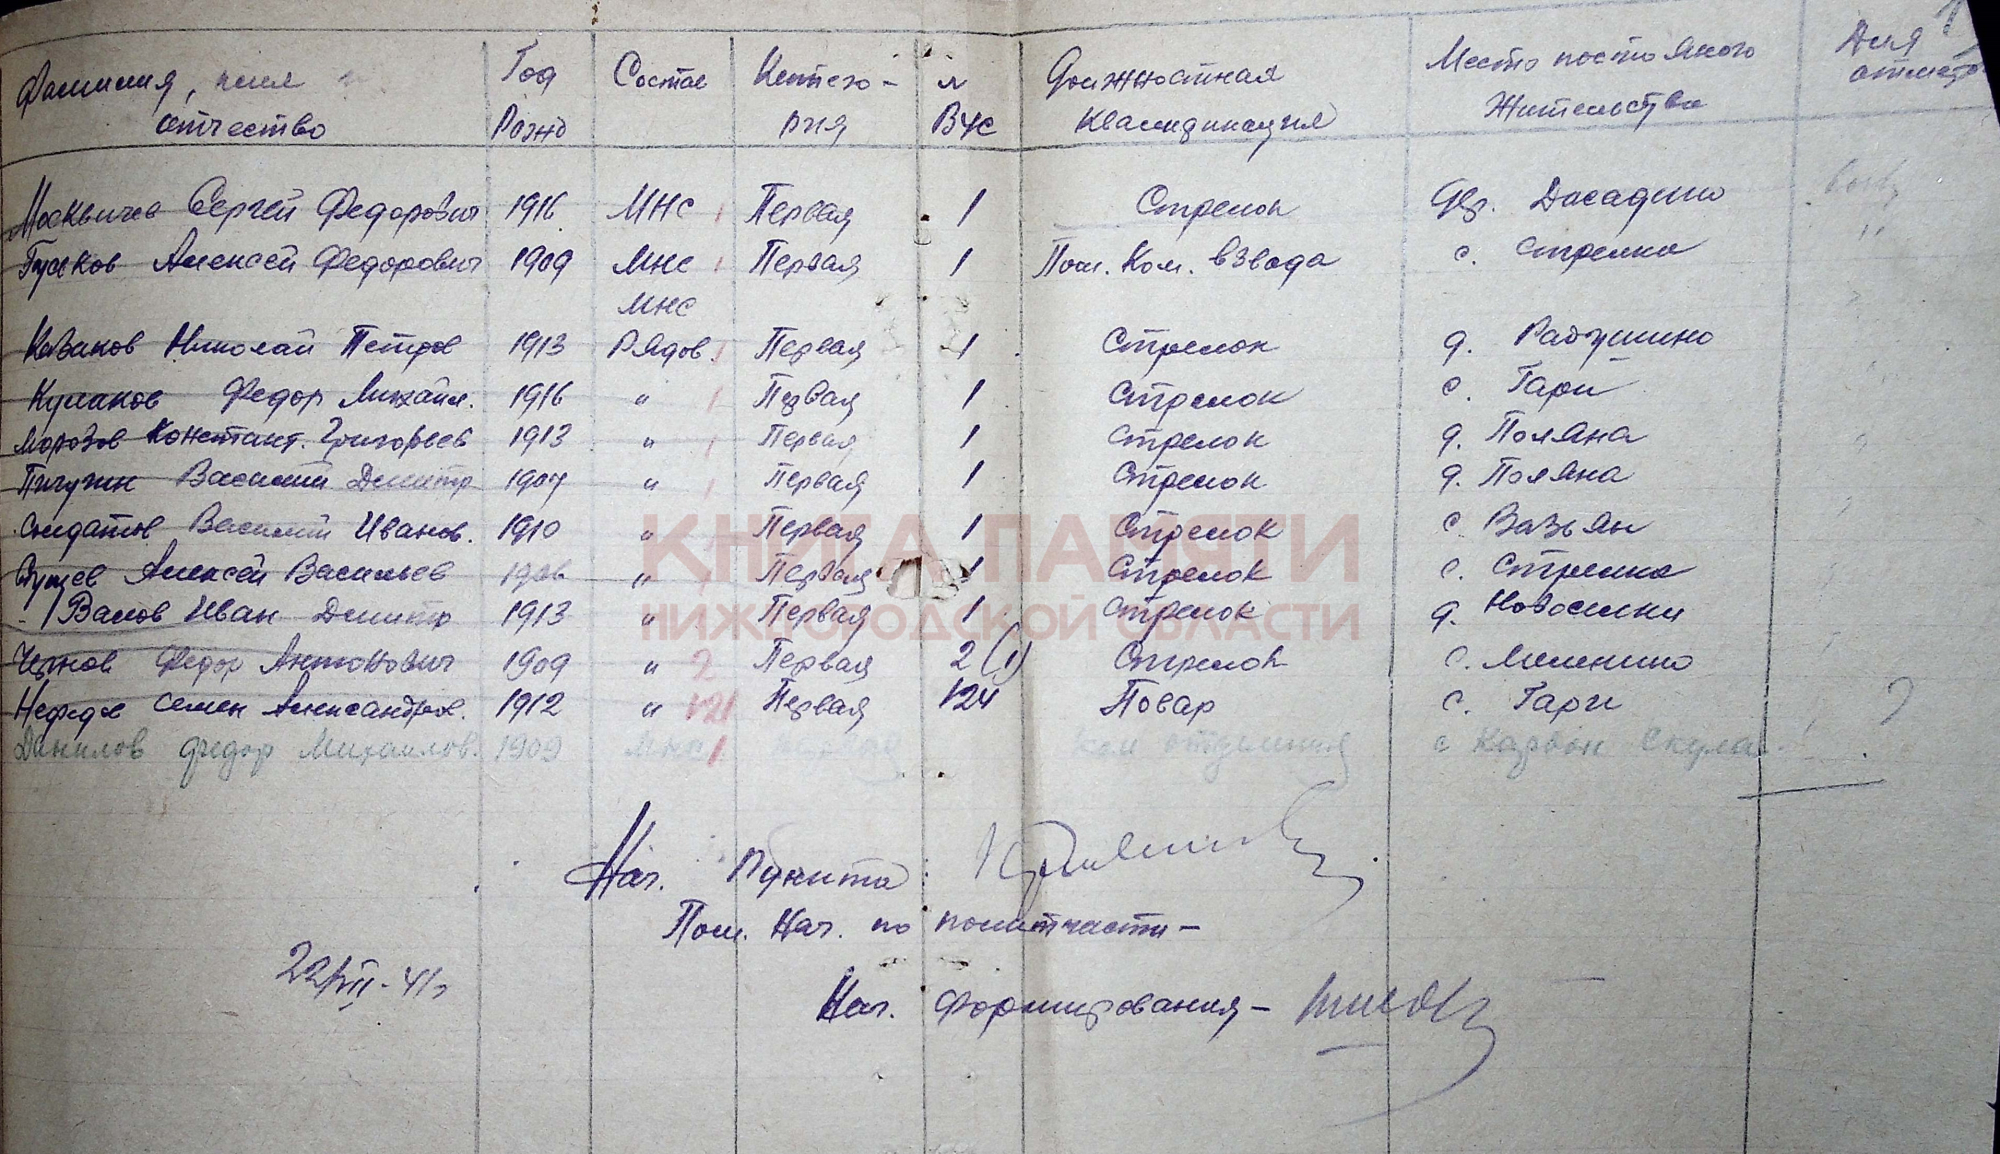 Фамилия, имя и отчество Год Рожд Состав Катего-рия № ВУС Должностная Квалификация Место постояного Жительства Для отметок
Москвичев Сергей Федорович 1916 МНС 1 Первая 1 Стрелок дер. Досадино
Гуськов Алексей Федорович 1909 МНС 1 Первая 1 Пом. Ком. взвода с. Стрелка
МНС
Казаков Николай Петров 1913 Рядов. 1 Первая 1 Стрелок д. Радушино
Кулаков Федор Михайл. 1916 " 1 Первая 1 Стрелок с. Гари
Морозов Констант. Григорьев 1913 " 1 Первая 1 Стрелок д. Поляна
Пичужк Василий Дмитр 1907 " 1 Первая 1 Стрелок д. Поляна
Солдатов Василий Иванов. 1910 " Первая 1 Стрелок с. Вазьян
Алексей Васильев 1906 " Первая 1 Стрелок с. Стрелка
Валов Иван Дмитр 1913 " Первая 1 Стрелок д. Новоселки
Чернов Федор Антонович 1909 " 2 Первая 2 (1) Стрелок с.
Семен Александров. 1912 " 121 Первая 124 Повар с. Гари ?
Данилов Федор Михайлов. 1909 МНС 1 Первая Ком отделения с
КНИГА ПАМЯТИ
НИЖЕГОРОДСКОЙ ОБЛАСТИ
Нач. Пункта
Пом. Нач. по политчасти –
22/VII-41г
Нач. Формирования –